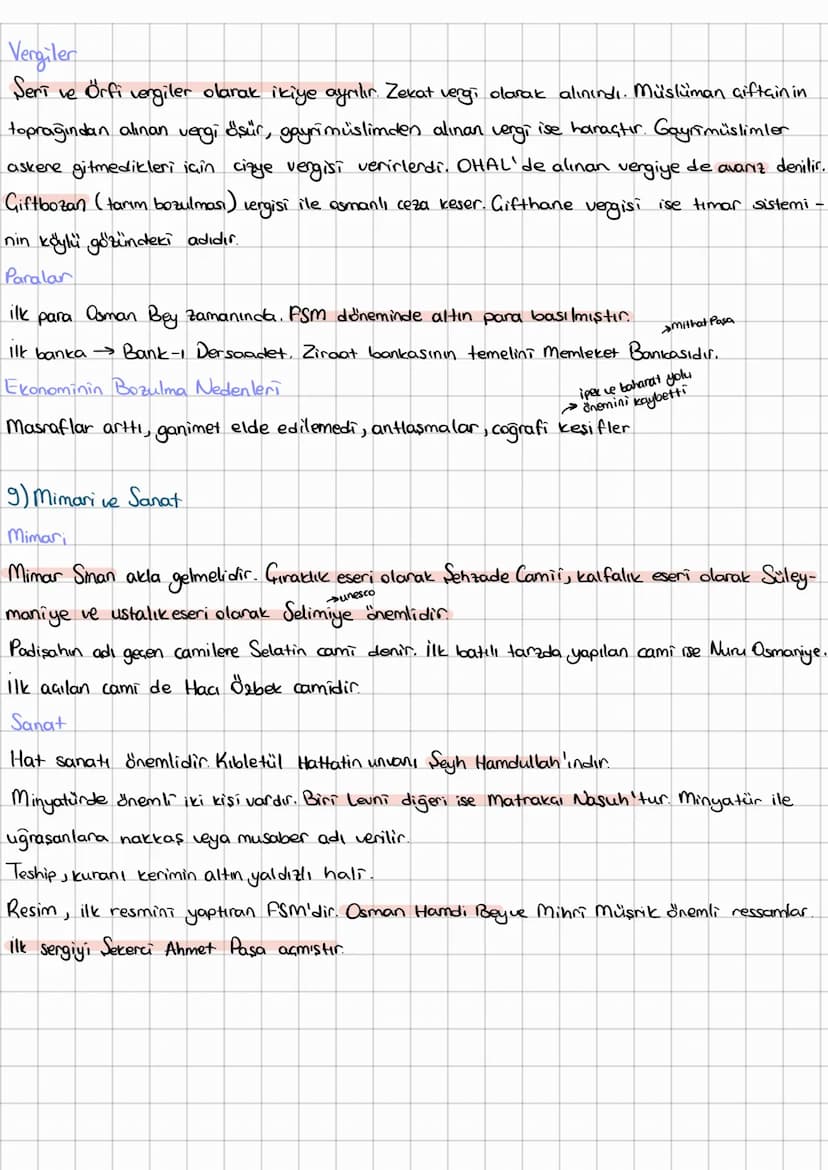 Vergiler
Şeri ve Örfi vergiler olarak ikiye ayrılır. Zekat vergi olarak alınırdı. Müslüman çiftçinin
toprağından alınan vergi öşür, gayrimüslimden alınan vergi ise haraçtır. Gayrimüslimler
askere gitmedikleri için cizye vergisi verirlerdi. OHAL'de alınan vergiye de avarız denilir.
Çiftbozan (tarım bozulması) vergisi ile osmanlı ceza keser. Çifthane vergisi ise tımar sistemi-
nin köylü gözündeki adıdır.
Paralar
ilk para Osman Bey zamanında. FSM döneminde altın para basılmıştır.
→Mithat Paşa
ilk banka → Bank-ı Dersaadet. Ziraat bankasının temelini Memleket Bankasıdır.
Ekonominin Bozulma Nedenleri
ipek ve baharat yolu
→ önemini kaybetti
Masraflar arttı, ganimet elde edilemedi, antlaşmalar, coğrafi keşifler
9) Mimari ve Sanat
Mimari
Mimar Sinan akla gelmelidir. Çıraklık eseri olarak Şehzade Camii, kalfalık eseri olarak Süley-
→unesco
maniye ve ustalık eseri olarak Selimiye önemlidir.
Padişahın adı geçen camilere Selatin cami denir. İlk batılı tarzda yapılan cami ise Nuru Osmaniye.
ilk açılan cami de Hacı Özbek camidir.
Sanat
Hat sanatı önemlidir. Kıbletül Hattatin unvanı Şeyh Hamdullah'ındır.
Minyatürde önemli iki kişi vardır. Biri Levni diğeri ise Matrakçı Nasuh'tur. Minyatür ile
uğraşanlara nakkaş veya musaber adı verilir.
Teship, kuranı kerimin altın yaldızlı hali.
Resim, ilk resmini yaptıran FSM'dir. Osman Hamdi Bey ve Mihri Müşrik önemli ressamlar.
ilk sergiyi Şekerci Ahmet Paşa açmıştır.